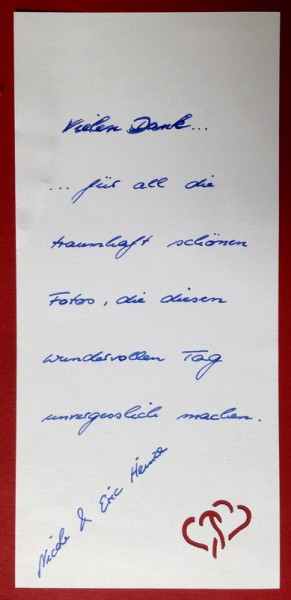 Vielen Dank...
... für all die
traumhaft schönen
Fotos, die diesen
wundervollen Tag
unvergesslich machen.
Nicole & Eric Heinze